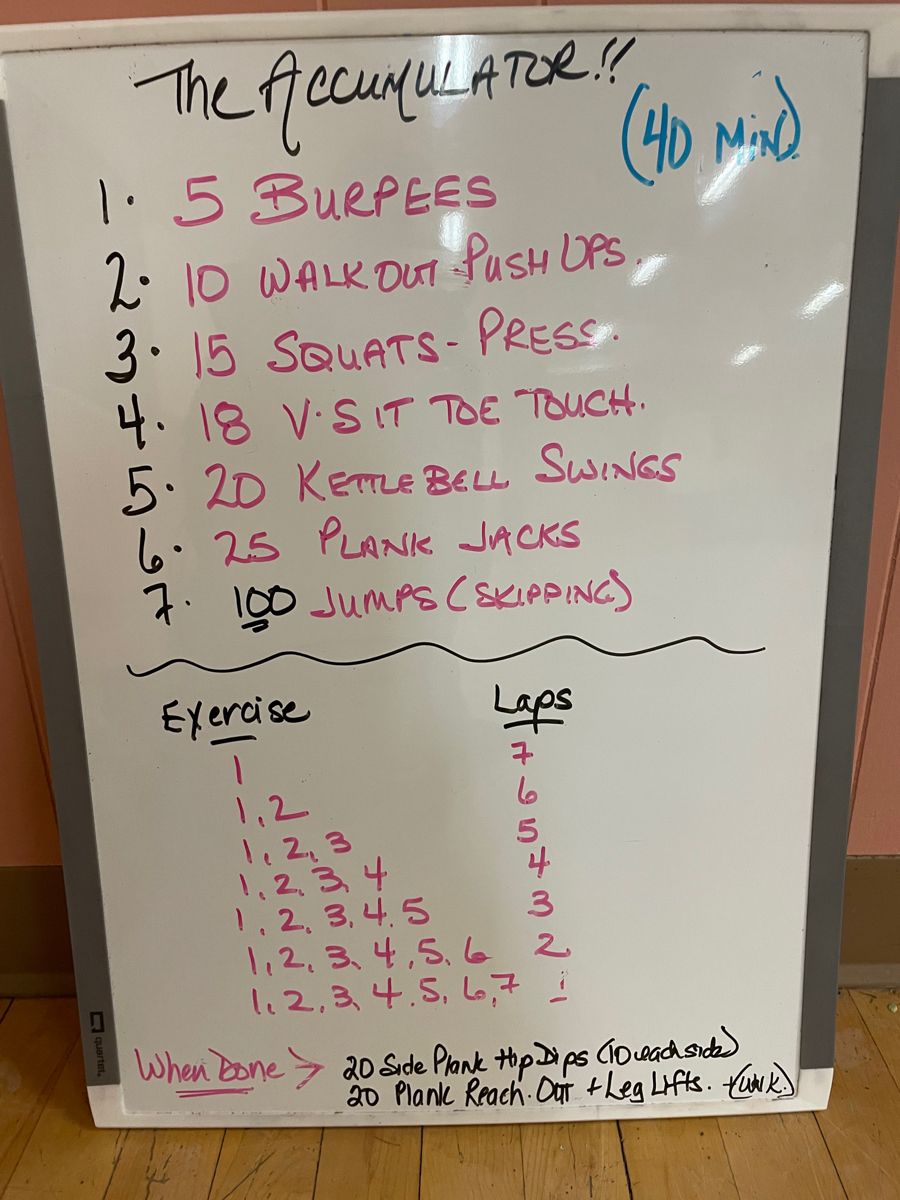 The Accumulator!!
(40 Min).
1. 5 Burpees
2. 10 Walk out Push Ups.
3. 15 Squats - Press.
4. 18 V. Sit Toe Touch.
5. 20 Kettle Bell Swings
6. 25 Plank Jacks
7. 100 Jumps (Skipping)
Exercise Laps
1 7
1, 2 6
1, 2, 3 5
1, 2, 3, 4 4
1, 2, 3, 4, 5 3
1, 2, 3, 4, 5, 6 2
1, 2, 3, 4, 5, 6, 7 1
When Done > 20 Side Plank Hip Dips (10 each side)
20 Plank Reach. Out + Leg Lifts.
quartet